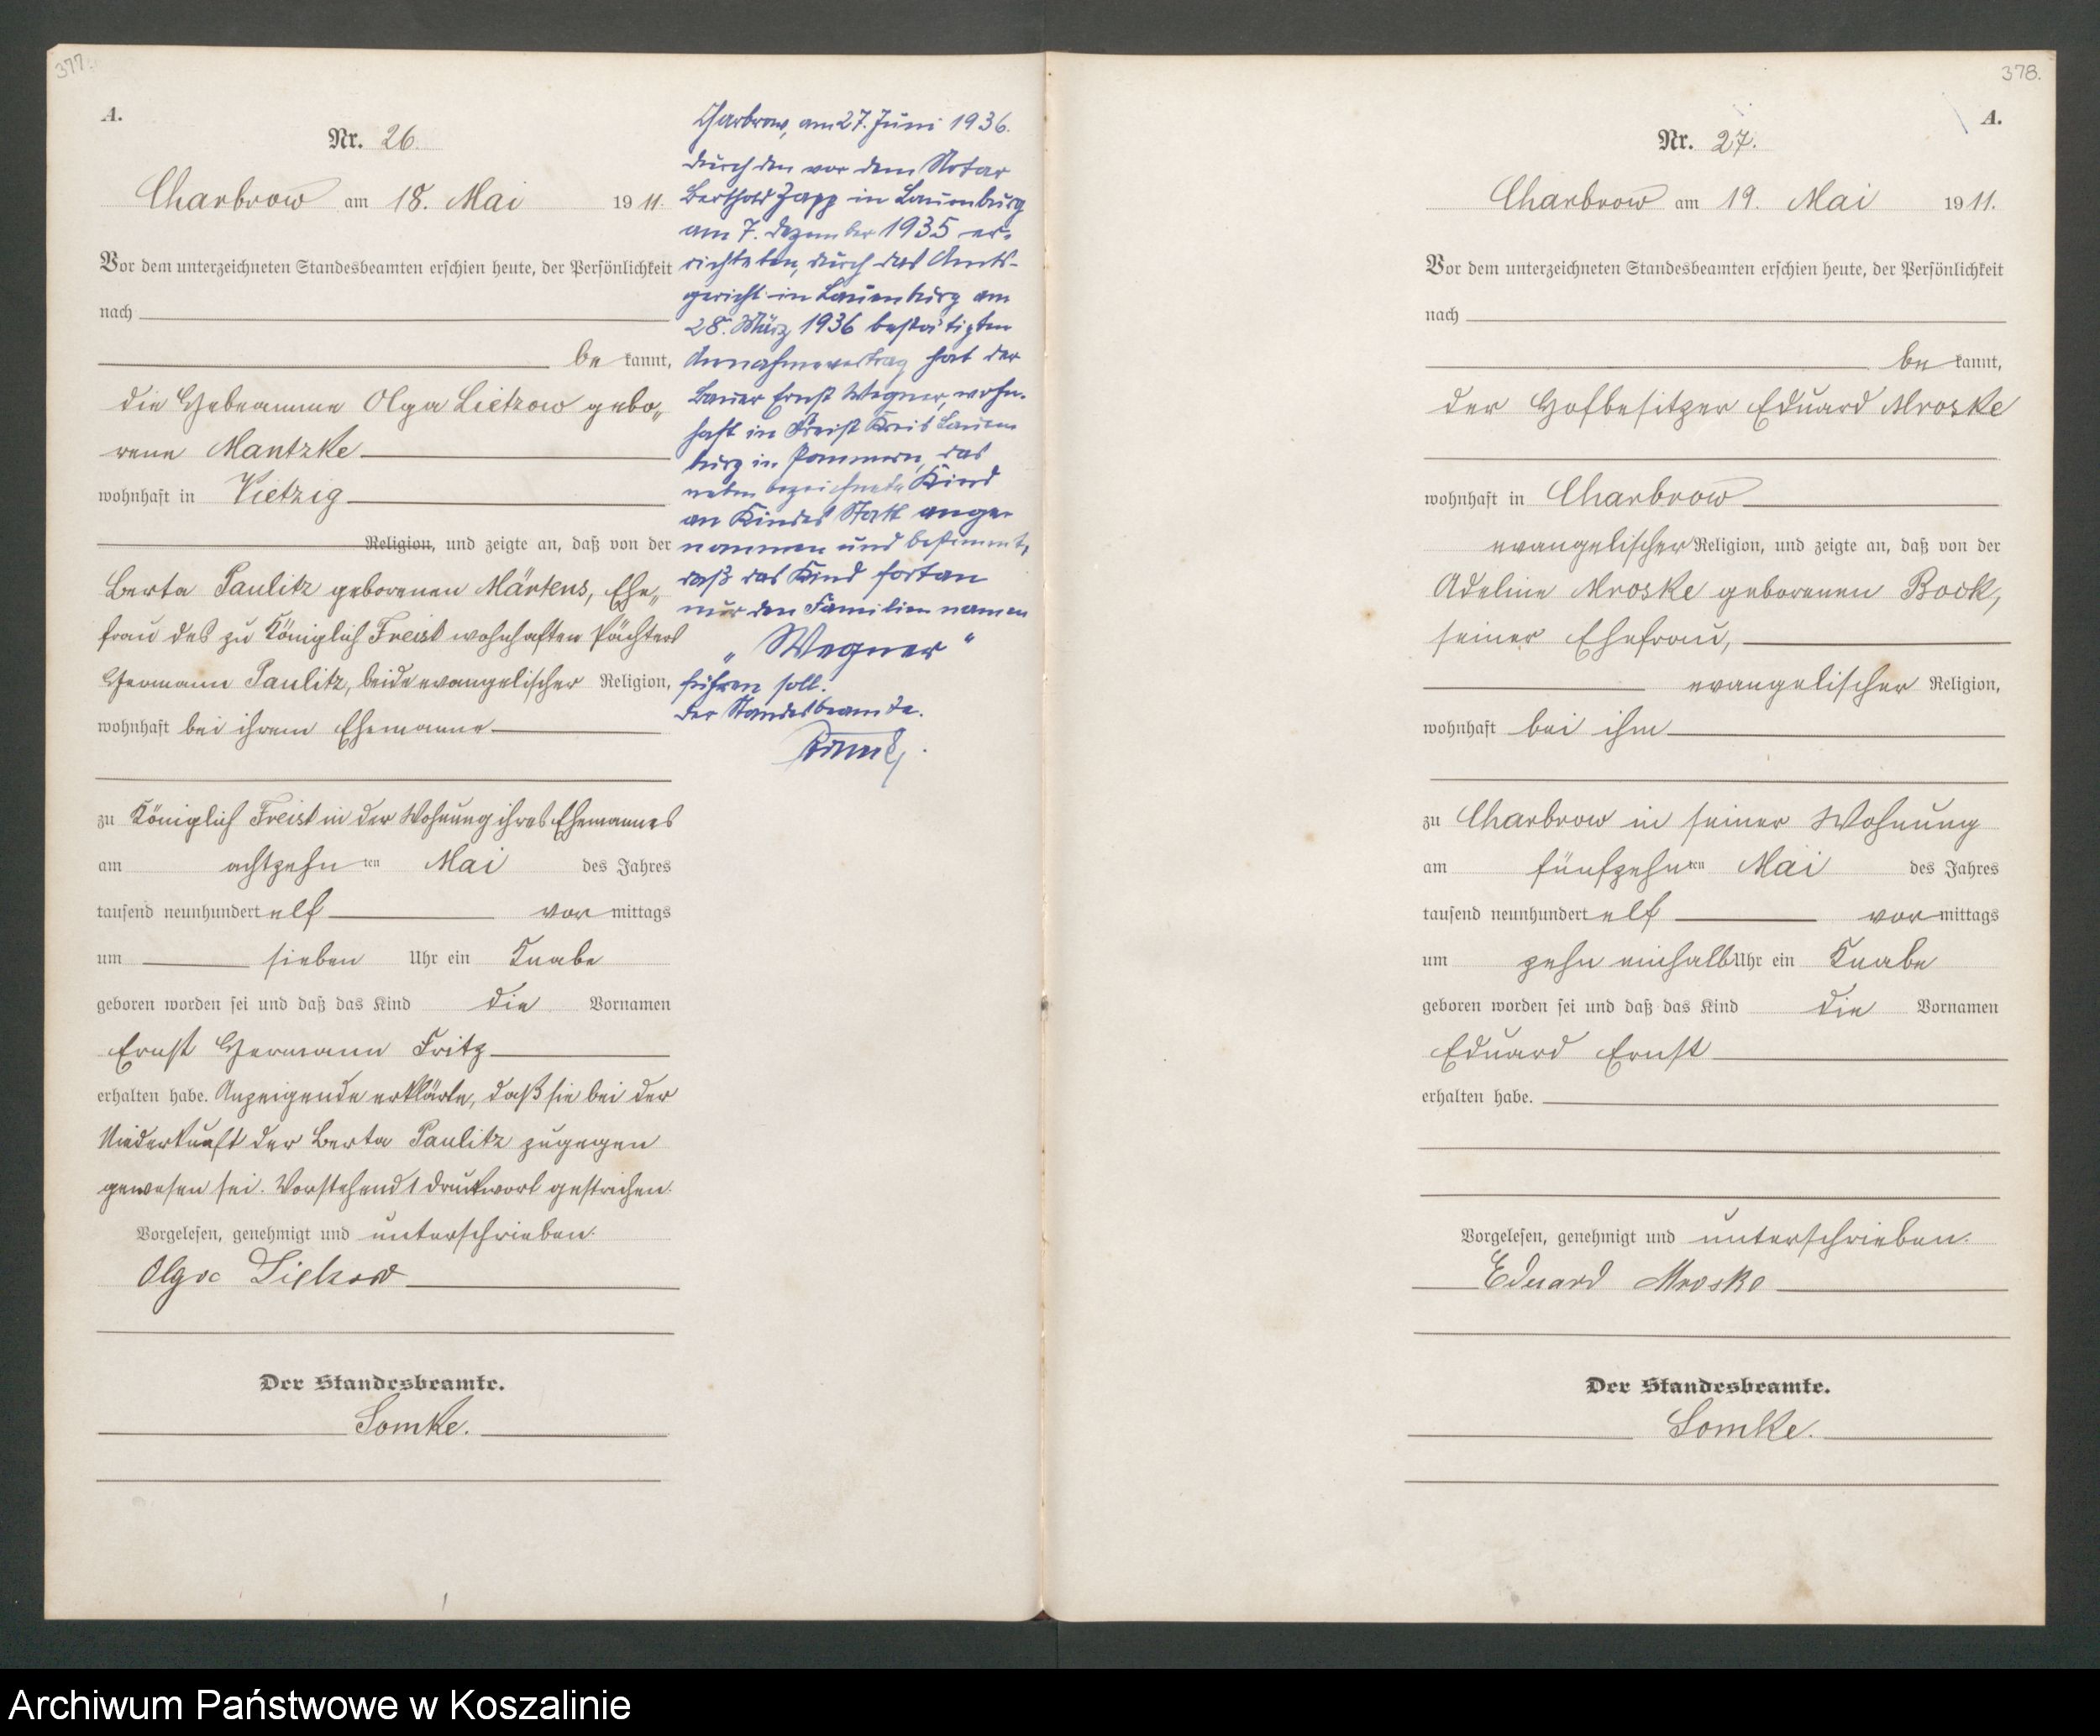 377.
A.
Nr. 26.
Charbrow am 18. Mai 1911.
Vor dem unterzeichneten Standesbeamten erschien heute, der Persönlichkeit
nach
be kannt,
die Hebeamme Olga Lietzow gebo„
rene Mantzke
wohnhaft in Vietzig
Religion, und zeigte an, daß von der
Berta Paulitz geborenen Märtens, Ehe„
frau des zu Königlich Freist wohnhaften Pächters
Hermann Paulitz, beide evangelischer Religion,
wohnhaft bei ihrem Ehemanne
zu Königlich Freist in der Wohnung ihres Ehemannes
am achtzehn ten Mai des Jahres
tausend neunhundert elf vor mittags
um sieben Uhr ein Knabe
geboren worden sei und daß das Kind die Vornamen
Ernst Hermann Fritz
erhalten habe. Anzeigende erklärte, daß sie bei der
Niederkunft der Berta Paulitz zugegen
gewesen sei. Vorstehend 1 Druckwort gestrichen.
Vorgelesen, genehmigt und unterschrieben.
Olga Lietzow
Der Standesbeamte.
Somke.
Charbrow, am 27. Juni 1936.
Durch den vor dem Notar
Berthold Zapp in Lauenburg
am 7. Dezember 1935 er-
richteten, durch das Amts-
gericht in Lauenburg am
28. März 1936 bestätigten
Annahmevertrag hat der
Bauer Ernst Wegner, wohn-
haft in Freist Kreis Lauen
burg in Pommern, das
neben bezeichnete Kind
an Kindes Statt ange-
nommen und bestimmt,
daß das Kind fortan
nur den Familiennamen
„Wegner“
führen soll.
Der Standesbeamte.
378.
A.
Nr. 27.
Charbrow am 19. Mai 1911.
Vor dem unterzeichneten Standesbeamten erschien heute, der Persönlichkeit
nach
be kannt,
der Hofbesitzer Eduard Mroske
wohnhaft in Charbrow
evangelischer Religion, und zeigte an, daß von der
Adeline Mroske geborenen Bock,
seiner Ehefrau,
evangelischer Religion,
wohnhaft bei ihm
zu Charbrow in seiner Wohnung
am fünfzehn ten Mai des Jahres
tausend neunhundert elf vor mittags
um zehn einhalb Uhr ein Knabe
geboren worden sei und daß das Kind die Vornamen
Eduard Ernst
erhalten habe.
Vorgelesen, genehmigt und unterschrieben.
Eduard Mroske
Der Standesbeamte.
Somke.
Archiwum Państwowe w Koszalinie